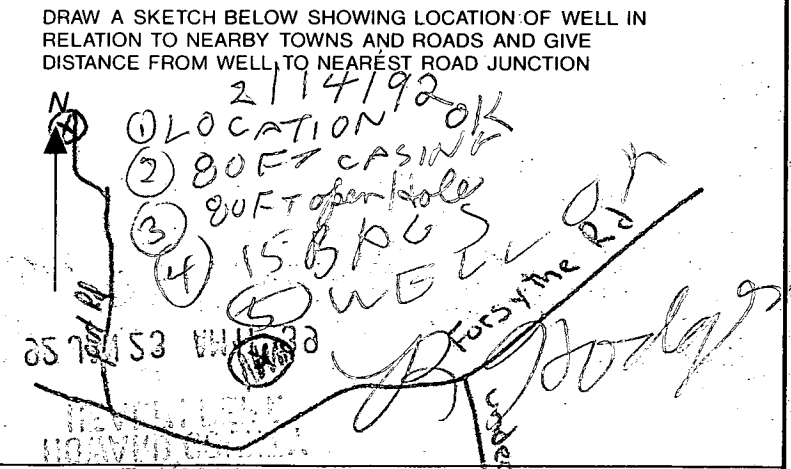 DRAW A SKETCH BELOW SHOWING LOCATION OF WELL IN
RELATION TO NEARBY TOWNS AND ROADS AND GIVE
DISTANCE FROM WELL TO NEAREST ROAD JUNCTION
2/14/92
N
① LOCATION OK
② 80 FT CASING
③ 80 FT open Hole
④ 15 BAGS
⑤ WELL OK
Forsythe Rd
Rd
R Hodges